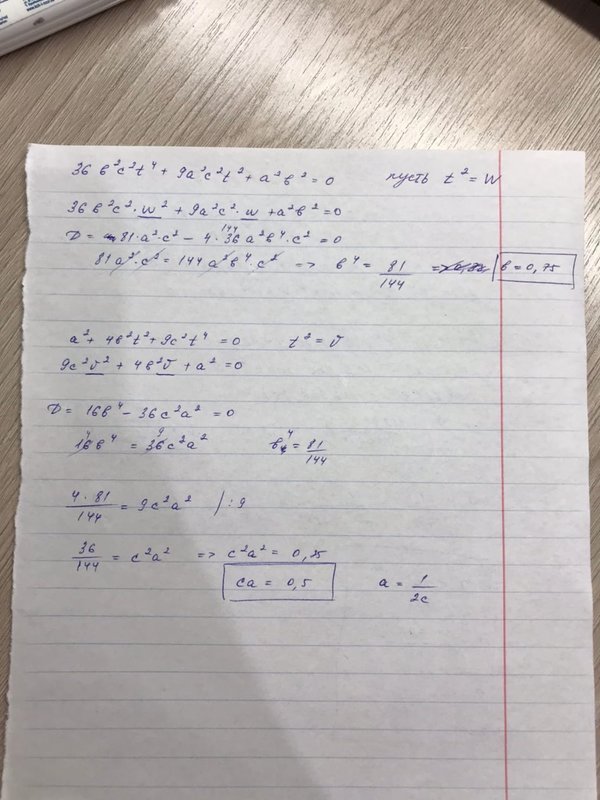 36 в²c²t⁴ + 9a²c²t² + a²в² = 0 пусть t² = W
36в²c²·w² + 9a²c²·w + a²в² = 0
D = 81·a²·c² - 4·36a²в⁴·c² = 0
144
81a²·c² = 144a²в⁴·c² => в⁴ = 81/144 = в = 0,75
a² + 4в²t² + 9c²t⁴ = 0 t² = v
9c²v² + 4в²v + a² = 0
D = 16в⁴ - 36c²a² = 0
4 9
16в⁴ = 36c²a² в⁴ = 81/144
4·81/144 = 9c²a² |:9
36/144 = c²a² => c²a² = 0,25
ca = 0,5 a = 1/2c